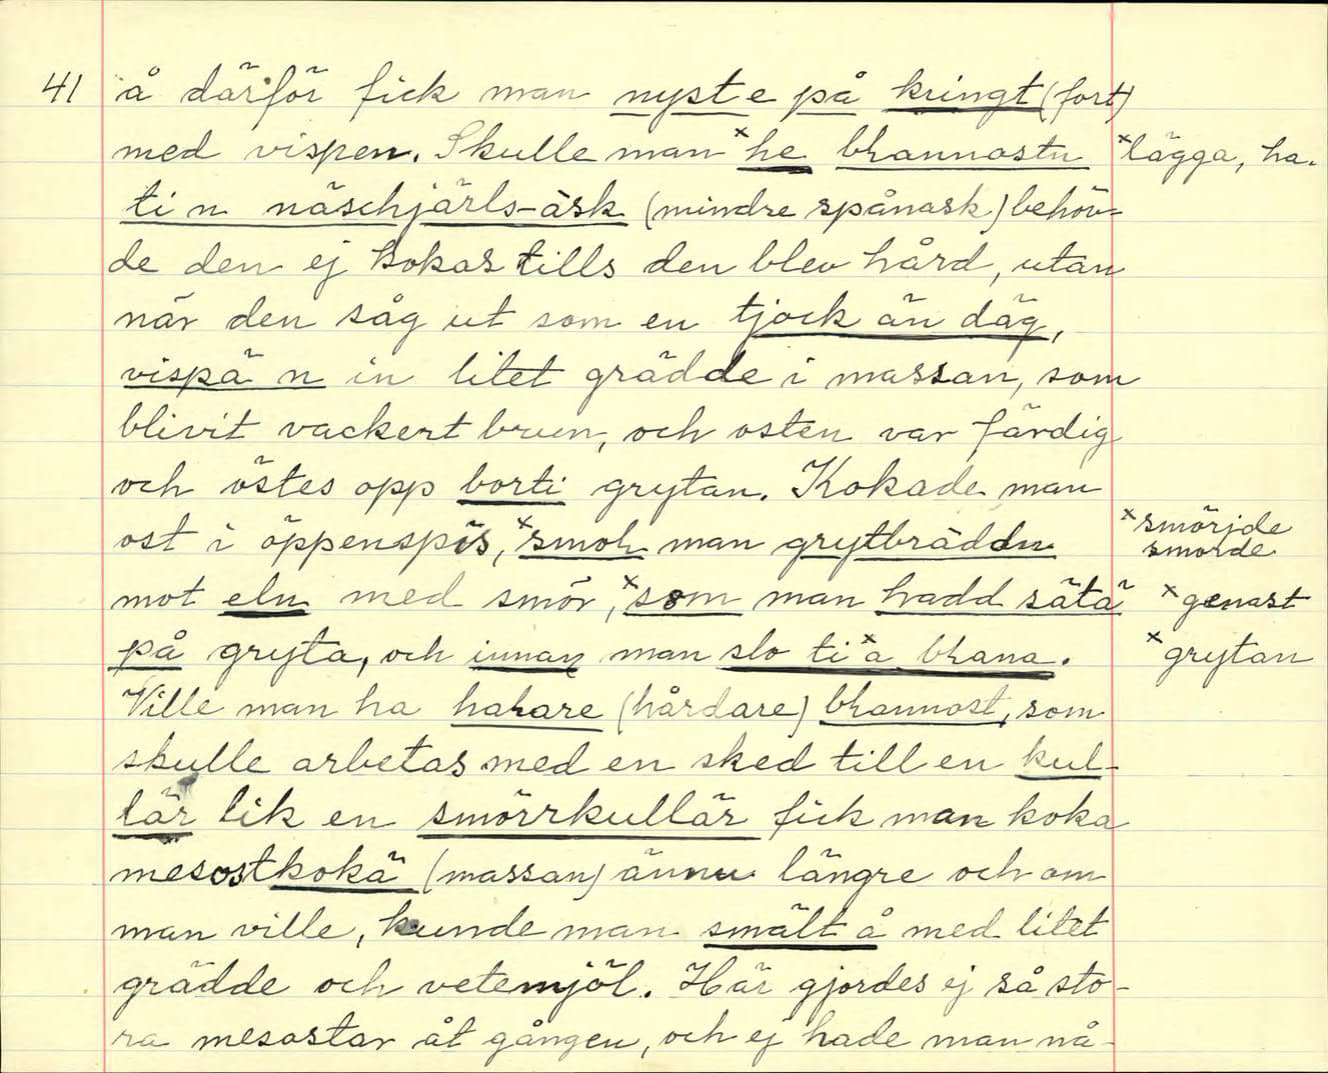 41 å därför fick man nyste på kringt (fort)
med vispen. Skulle man ˣhe bhannostn ˣlägga, ha.
ti n näschjärls-äsk (mindre spånask) behöv-
de den ej kokas tills den blev hård, utan
när den såg ut som en tjock än däg,
vispä n in litet grädde i massan, som
blivit vackert brun, och osten var färdig
och östes opp borti grytan. Kokade man
ost i öppenspis, ˣsmoh man grytbräddn ˣsmörjde smorde
mot eln med smör, ˣsom man hadd sätä ˣgenast
på gryta, och innan man slo ti ˣa bhana. ˣgrytan
Ville man ha hahare (hårdare) bhannost, som
skulle arbetas med en sked till en kul-
lär lik en smörrkullär fick man koka
mesostkokä (massan) ännu längre och om
man ville, kunde man smält å med litet
grädde och vetemjöl. Här gjordes ej så sto-
ra mesostar åt gången, och ej hade man nå-